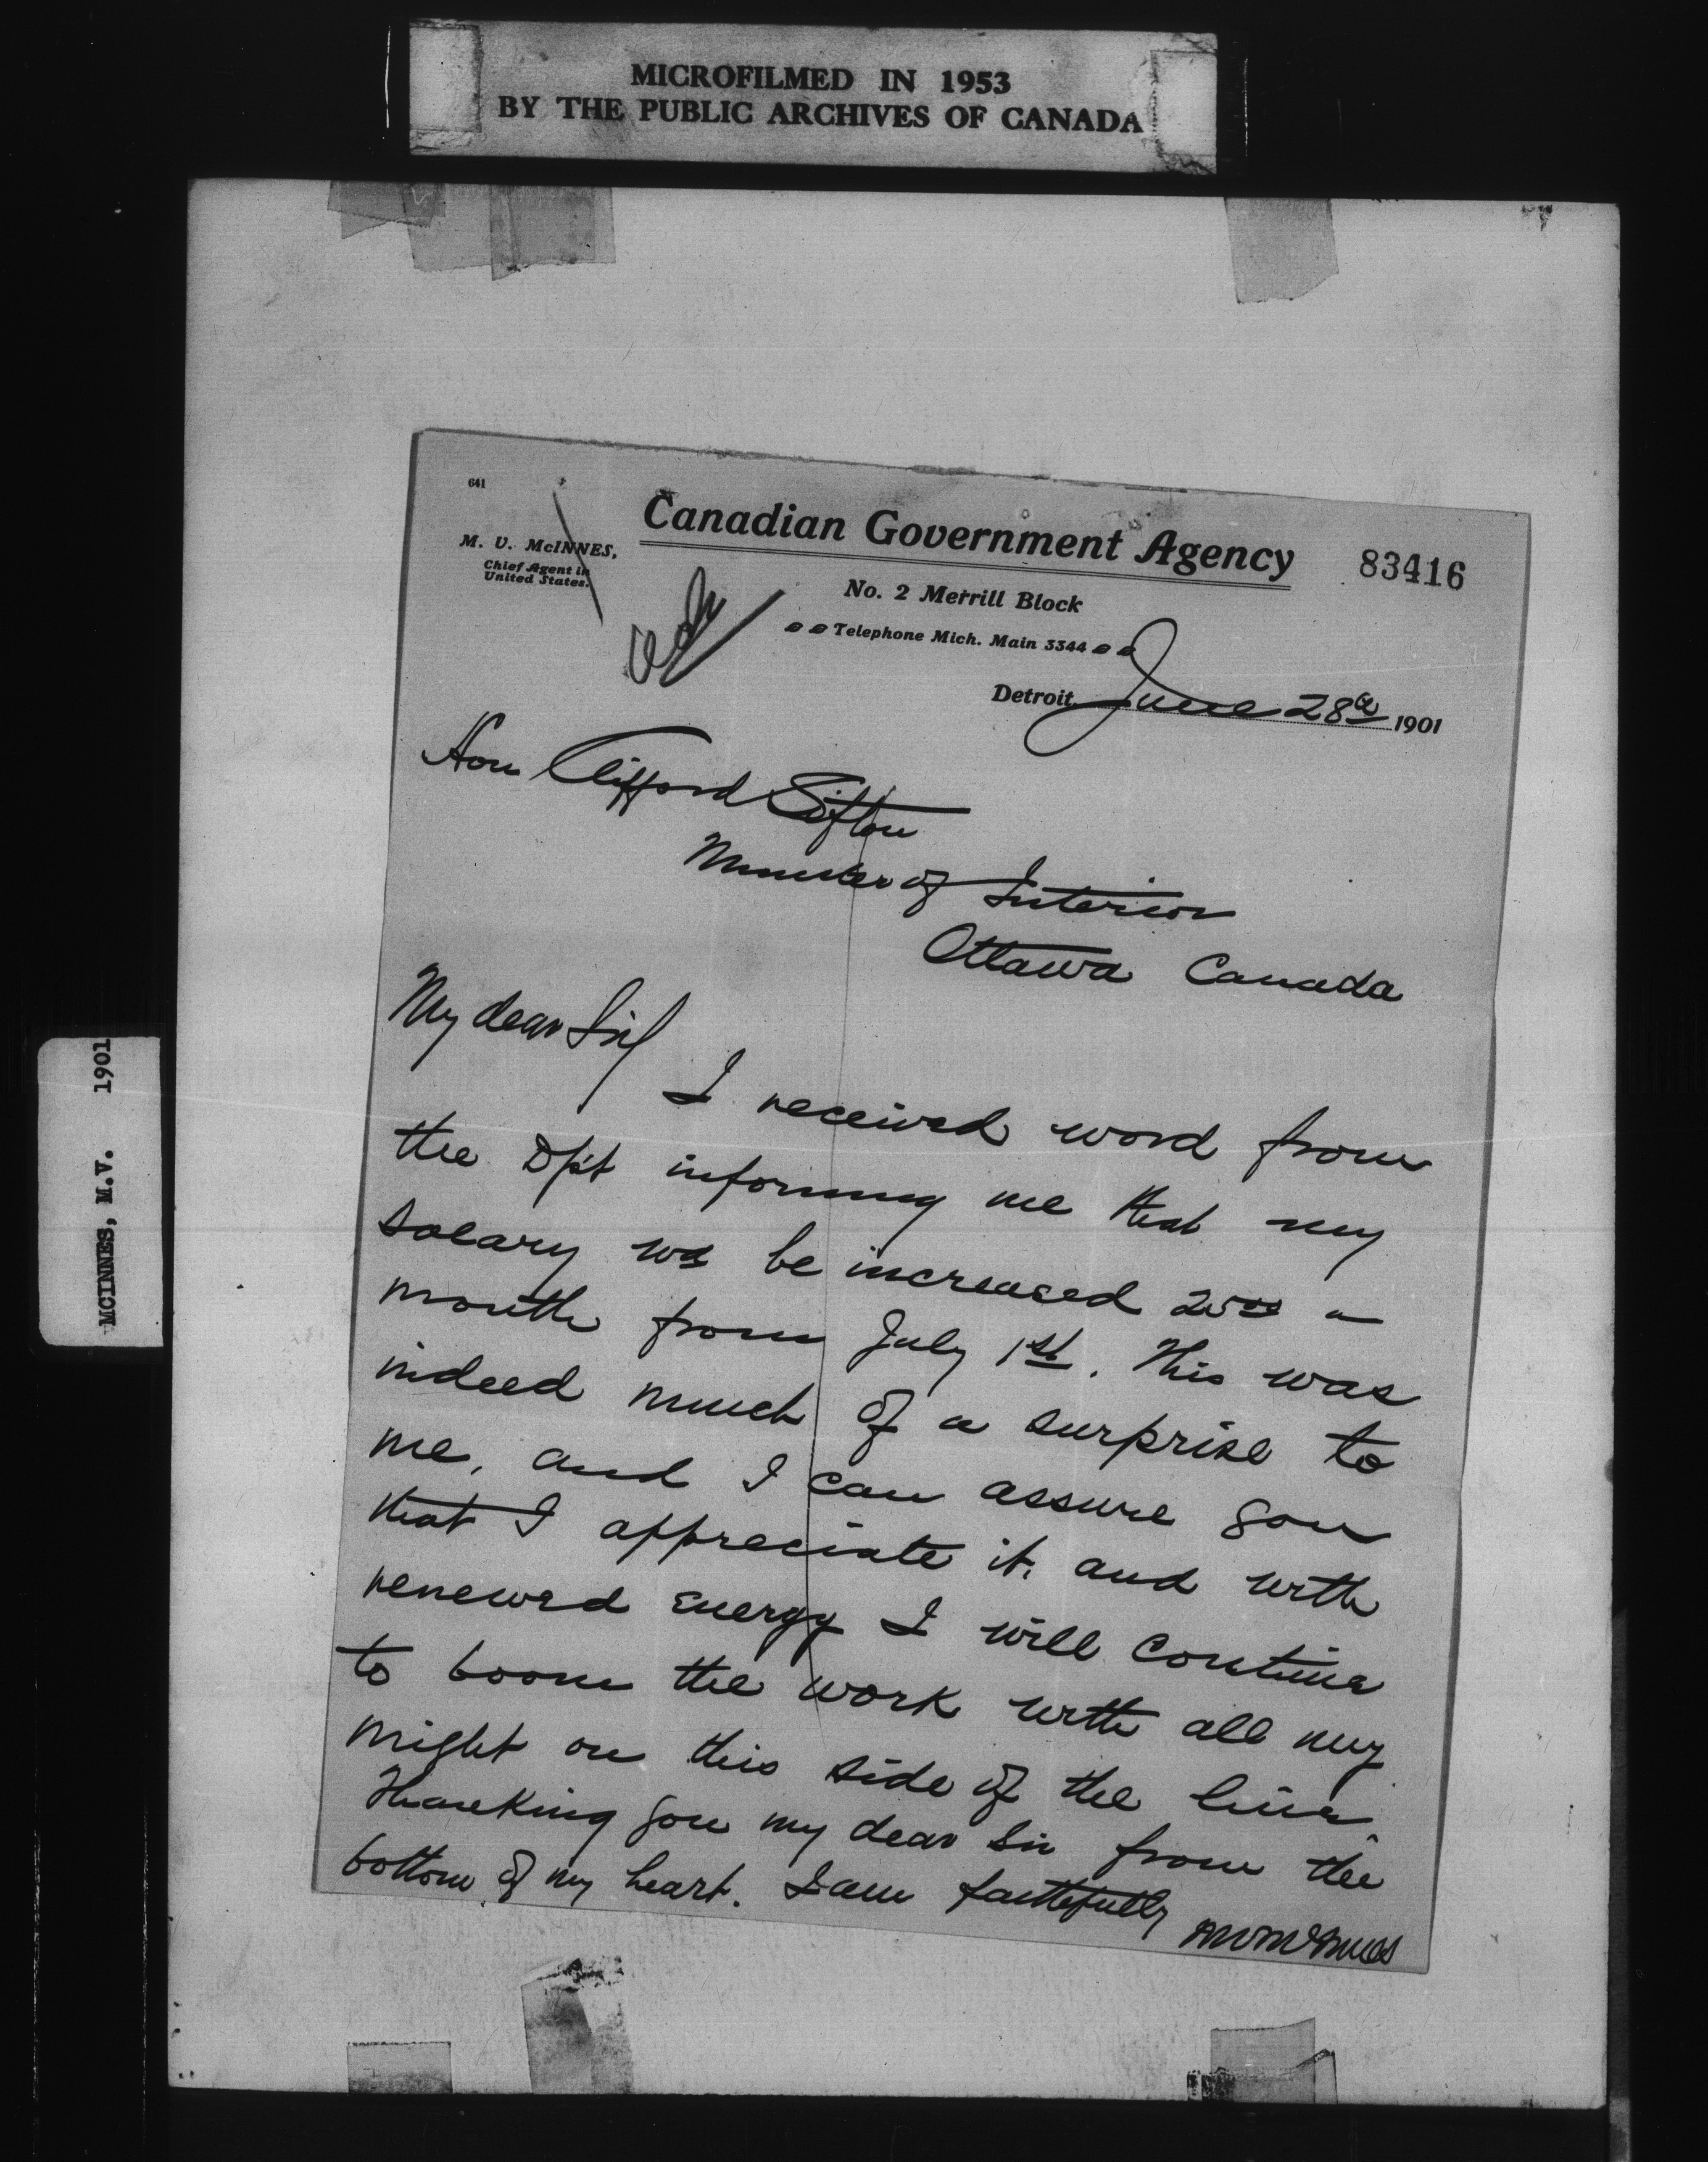 MICROFILMED IN 1953
BY THE PUBLIC ARCHIVES OF CANADA
MCINNES, M.V. 1901
641
Canadian Government Agency
83416
M. V. McINNES,
Chief Agent in
United States.
No. 2 Merrill Block
Telephone Mich. Main 3344
Detroit, June 28th 1901
Hon Clifford Sifton
Minister of Interior
Ottawa Canada
My dear Sir/
I received word from
the Dpt informing me that my
salary wd be increased 25 00 a
month from July 1st. This was
indeed much of a surprise to
me, and I can assure you
that I appreciate it, and with
renewed energy I will continue
to boom the work with all my
might on this side of the line.
Thanking you my dear Sir from the
bottom of my heart. I am faithfully
M V McInnes